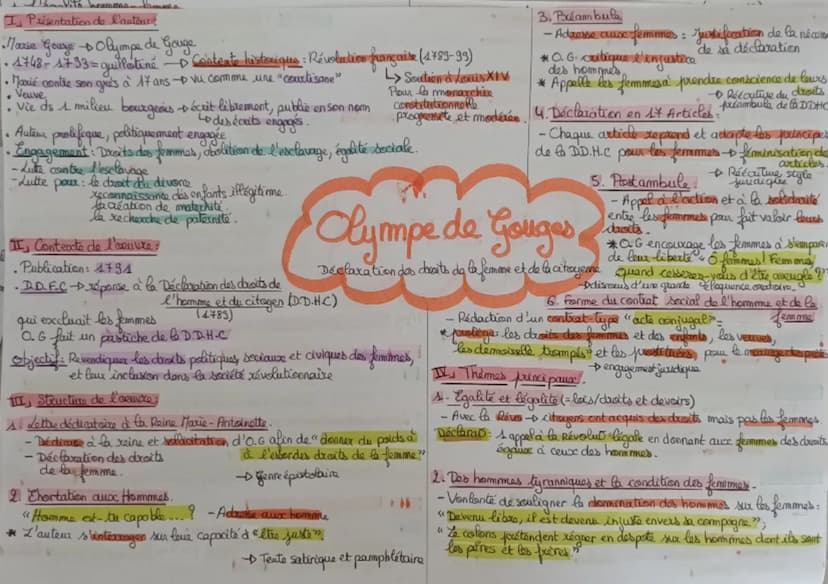 I, Présentation de l'auteur:
. Marie Gouze → Olympe de Gouge.
. 1748 - 1793 = guillotiné → Contexte historique : Révolution française (1789-99)
. Marié contre son grès à 17 ans → vu comme une "courtisane"
↳ Soutien à Louis XIV
. Veuve.
Pour la monarchie
. Vie ds 1 milieu bourgeois → écrit librement, publie en son nom
constitutionnelle
↳ des écrits engagés.
progressite et modérée.
. Auteur prolifique, politiquement engagée
. Engagement : Droits des femmes, abolition de l'esclavage, égalité sociale.
- Lutte contre l'esclavage
- Lutte pour : le droit du divorce
reconnaissance des enfants illégitime
la création de maternité.
la recherche de paternité.
Olympe de Gouges
Déclaration des droits de la femme et de la citoyenne
II, Contexte de l'œuvre :
. Publication : 1791
. D.D.F.C → réponse à la Déclaration des droits de
l'homme et du citoyen (D.D.H.C)
(1789)
qui excluait les femmes
O.G fait un pastiche de la D.D.H.C
Objectif : Revendiquer les droits politiques sociaux et civiques des femmes,
et leur inclusion dans la société révolutionnaire
III, Structure de l'œuvre :
1. Lettre dédicatoire à la Reine Marie-Antoinette.
- Dédicace à la reine et sollicitation d'O.G afin de "donner du poids à
- Déclaration des droits
de la femme.
de la femme"
→ Genre épistolaire
2 Exhortation aux Hommes.
"Homme es-tu capable ... ?
- Adresse aux homme
* L'auteur s'interroger sur leur capacité d'"être juste"
→ Texte satirique et pamphlétaire
3. Préambule
- Adresse aux femmes = justification de la
de sa déclaration
* O.G critique l'injustice
des hommes
* Appelle les femmes à prendre conscience de leurs
droits
→ Réécriture du
préambule de la D.D.H.C
4. Déclaration en 17 Articles :
- Chaque article reprend et adapte les principes
de la D.D.H.C pour les femmes → féminisation des
articles.
→ Réécriture style
juridique
5. Postambule.
- Appel à l'action et à la solidarité
entre les femmes pour fait valoir leurs
droits.
* O.G encourage les femmes à s'emparer
de leur liberté : "Ô femmes ! Femmes
quand cesserez-vous d'être aveugle ?"
↳ discours d'une grande éloquence oratoire.
6. Forme du contrat social de l'homme et de la
femme
- Rédaction d'un contrat-type "acte conjugal" =
* protège les droits des femmes et des enfants, les veuves,
les demoiselle trompés et les prostituées, pour le
→ engagement juridique
IV, Thèmes principaux.
1. Egalité et légalité (= lois/droits et devoirs)
- Avec la Révo → citoyens ont acquis des droits mais pas les femmes.
Déclarat° : 1 appel à la révolut° légale en donnant aux femmes des droits
égaux à ceux des hommes.
2. Des hommes tyranniques et la condition des femmes.
- Volonté de souligner la domination des hommes sur les femmes :
"Devenu libre, il est devenu injuste envers sa compagne",
"Le colons prétendent régner en despote sur les hommes dont ils sont
les pères et les frères"